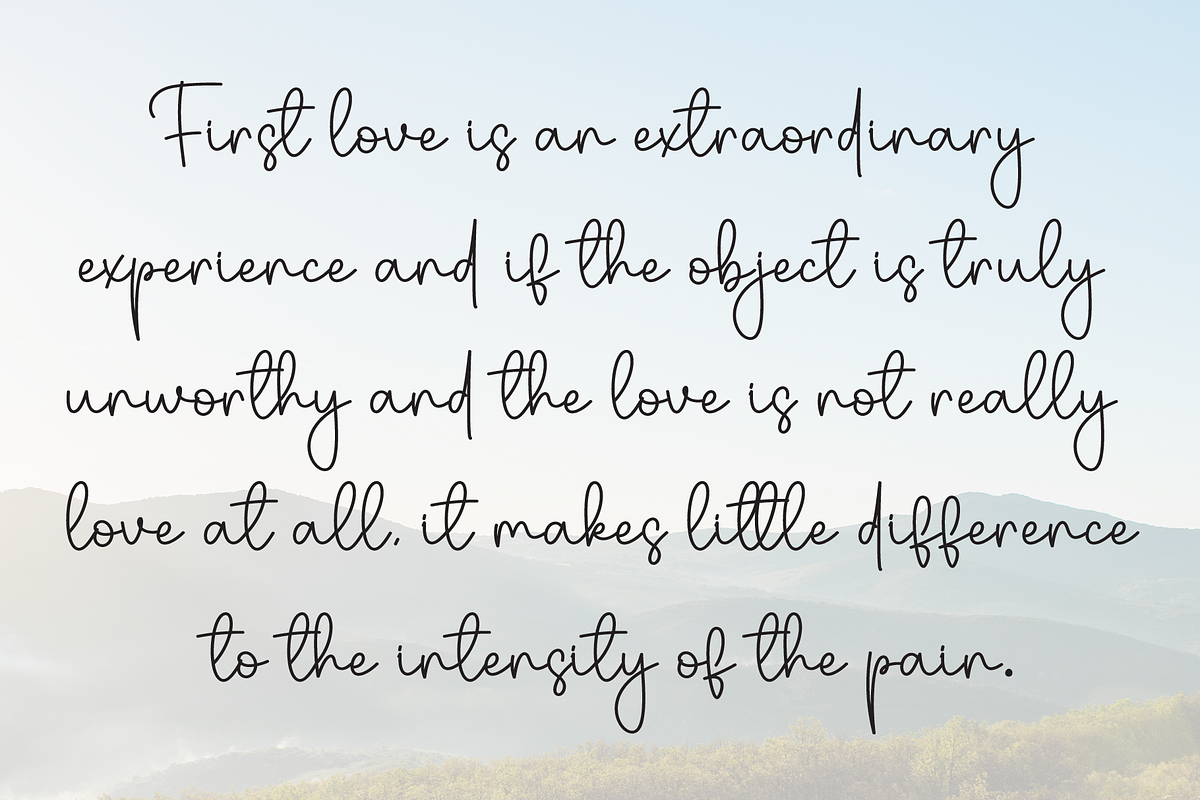 First love is an extraordinary
experience and if the object is truly
unworthy and the love is not really
love at all, it makes little difference
to the intensity of the pain.